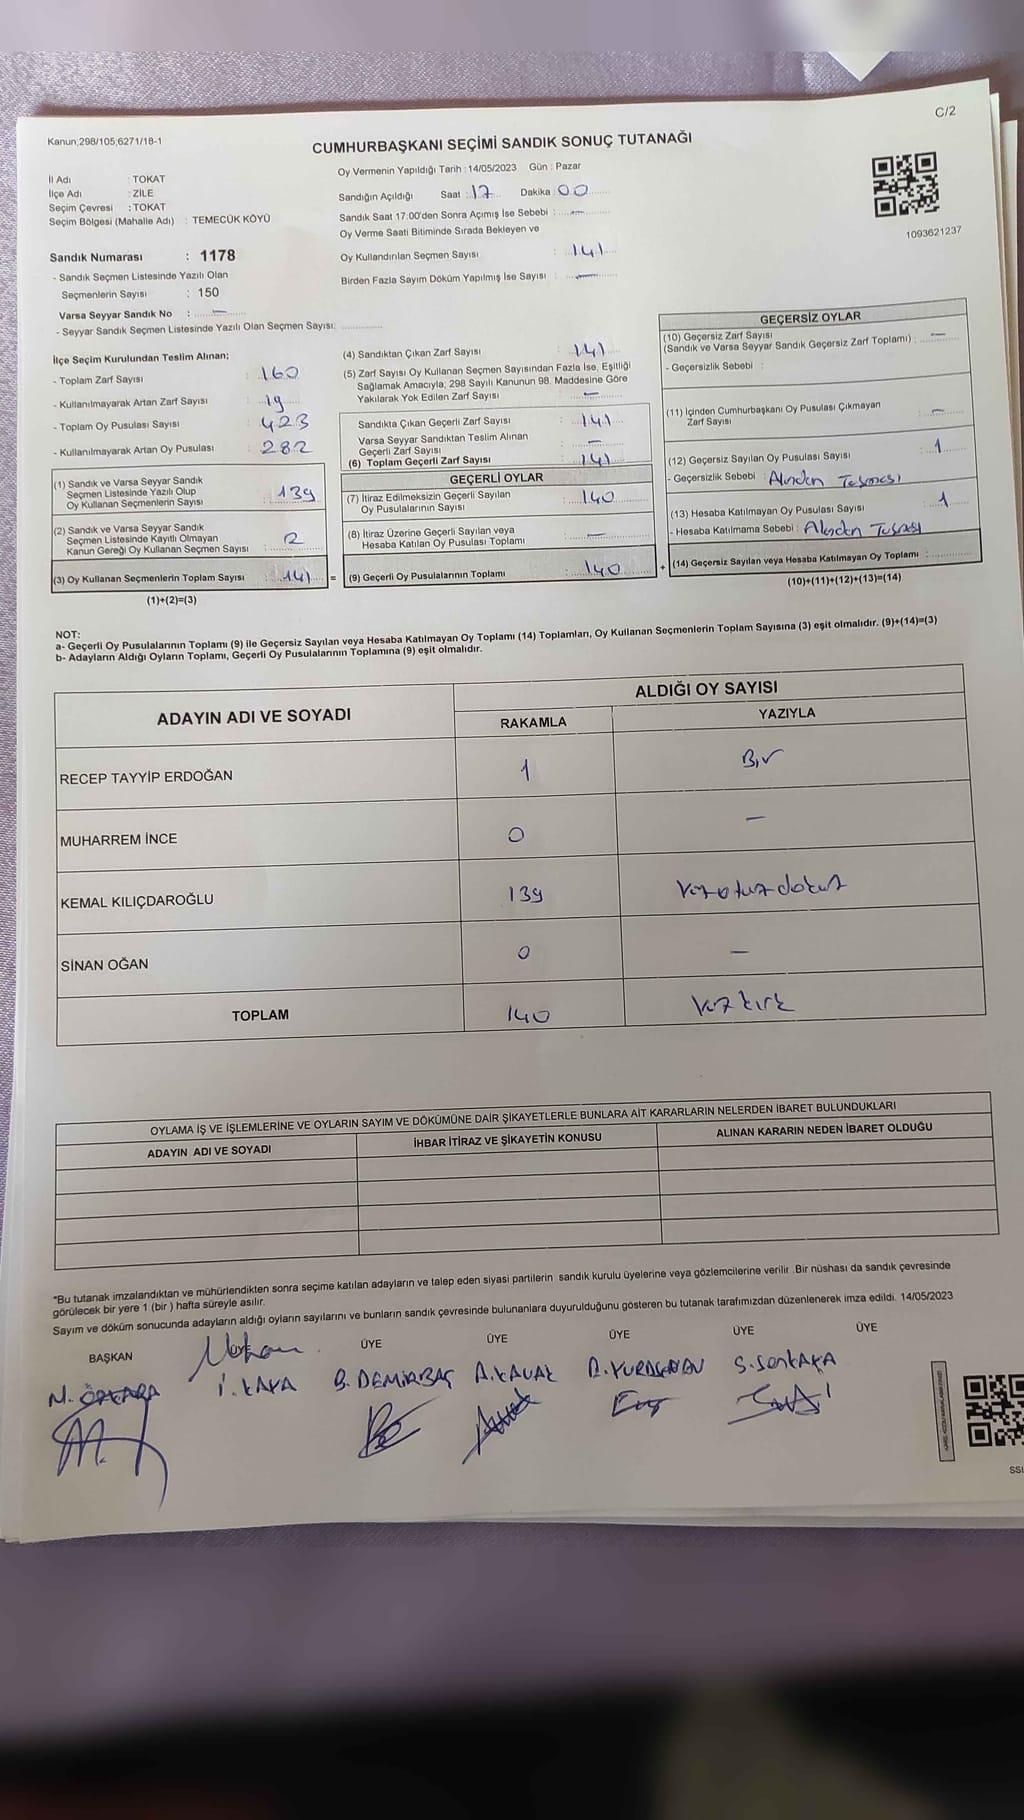 C/2
Kanun;298/105;6271/18-1
CUMHURBAŞKANI SEÇİMİ SANDIK SONUÇ TUTANAĞI
Oy Vermenin Yapıldığı Tarih : 14/05/2023 Gün : Pazar
İl Adı : TOKAT
İlçe Adı : ZİLE
Seçim Çevresi : TOKAT
Seçim Bölgesi (Mahalle Adı) : TEMECÜK KÖYÜ
Sandığın Açıldığı Saat : 17 Dakika 00
Sandık Saat 17:00'den Sonra Açımış İse Sebebi : —
Oy Verme Saati Bitiminde Sırada Bekleyen ve
Oy Kullandırılan Seçmen Sayısı : 141
Birden Fazla Sayım Döküm Yapılmış İse Sayısı : —
1093621237
Sandık Numarası : 1178
- Sandık Seçmen Listesinde Yazılı Olan
Seçmenlerin Sayısı : 150
Varsa Seyyar Sandık No : —
- Seyyar Sandık Seçmen Listesinde Yazılı Olan Seçmen Sayısı:
İlçe Seçim Kurulundan Teslim Alınan;
- Toplam Zarf Sayısı : 160
- Kullanılmayarak Artan Zarf Sayısı : 19
- Toplam Oy Pusulası Sayısı : 423
- Kullanılmayarak Artan Oy Pusulası : 282
(1) Sandık ve Varsa Seyyar Sandık
Seçmen Listesinde Yazılı Olup
Oy Kullanan Seçmenlerin Sayısı : 139
(2) Sandık ve Varsa Seyyar Sandık
Seçmen Listesinde Kayıtlı Olmayan
Kanun Gereği Oy Kullanan Seçmen Sayısı : 2
(3) Oy Kullanan Seçmenlerin Toplam Sayısı : 141 =
(1)+(2)=(3)
(4) Sandıktan Çıkan Zarf Sayısı : 141
(5) Zarf Sayısı Oy Kullanan Seçmen Sayısından Fazla İse, Eşitliği
Sağlamak Amacıyla; 298 Sayılı Kanunun 98. Maddesine Göre
Yakılarak Yok Edilen Zarf Sayısı : —
Sandıkta Çıkan Geçerli Zarf Sayısı : 141
Varsa Seyyar Sandıktan Teslim Alınan
Geçerli Zarf Sayısı : —
(6) Toplam Geçerli Zarf Sayısı : 141
GEÇERLİ OYLAR
(7) İtiraz Edilmeksizin Geçerli Sayılan
Oy Pusulalarının Sayısı : 140
(8) İtiraz Üzerine Geçerli Sayılan veya
Hesaba Katılan Oy Pusulası Toplamı : —
(9) Geçerli Oy Pusulalarının Toplamı : 140 +
GEÇERSİZ OYLAR
(10) Geçersiz Zarf Sayısı
(Sandık ve Varsa Seyyar Sandık Geçersiz Zarf Toplamı) : —
- Geçersizlik Sebebi :
(11) İçinden Cumhurbaşkanı Oy Pusulası Çıkmayan
Zarf Sayısı : —
(12) Geçersiz Sayılan Oy Pusulası Sayısı : 1
- Geçersizlik Sebebi : Alından Taşması
(13) Hesaba Katılmayan Oy Pusulası Sayısı : 1
- Hesaba Katılmama Sebebi : Alından Taşması
(14) Geçersiz Sayılan veya Hesaba Katılmayan Oy Toplamı :
(10)+(11)+(12)+(13)=(14)
NOT:
a- Geçerli Oy Pusulalarının Toplamı (9) ile Geçersiz Sayılan veya Hesaba Katılmayan Oy Toplamı (14) Toplamları, Oy Kullanan Seçmenlerin Toplam Sayısına (3) eşit olmalıdır. (9)+(14)=(3)
b- Adayların Aldığı Oyların Toplamı, Geçerli Oy Pusulalarının Toplamına (9) eşit olmalıdır.
ADAYIN ADI VE SOYADI ALDIĞI OY SAYISI
RAKAMLA YAZIYLA
RECEP TAYYİP ERDOĞAN 1 Bir
MUHARREM İNCE 0 —
KEMAL KILIÇDAROĞLU 139 Yüzotuzdokuz
SİNAN OĞAN 0 —
TOPLAM 140 Yüzkırk
OYLAMA İŞ VE İŞLEMLERİNE VE OYLARIN SAYIM VE DÖKÜMÜNE DAİR ŞİKAYETLERLE BUNLARA AİT KARARLARIN NELERDEN İBARET BULUNDUKLARI
ADAYIN ADI VE SOYADI İHBAR İTİRAZ VE ŞİKAYETİN KONUSU ALINAN KARARIN NEDEN İBARET OLDUĞU
*Bu tutanak imzalandıktan ve mühürlendikten sonra seçime katılan adayların ve talep eden siyasi partilerin sandık kurulu üyelerine veya gözlemcilerine verilir. Bir nüshası da sandık çevresinde
görülecek bir yere 1 (bir) hafta süreyle asılır.
Sayım ve döküm sonucunda adayların aldığı oyların sayılarını ve bunların sandık çevresinde bulunanlara duyurulduğunu gösteren bu tutanak tarafımızdan düzenlenerek imza edildi. 14/05/2023
BAŞKAN ÜYE ÜYE ÜYE ÜYE ÜYE
M. ÖZKARA İ. KAYA B. DEMİRBAŞ A. KAVAK S. SARIKAYA